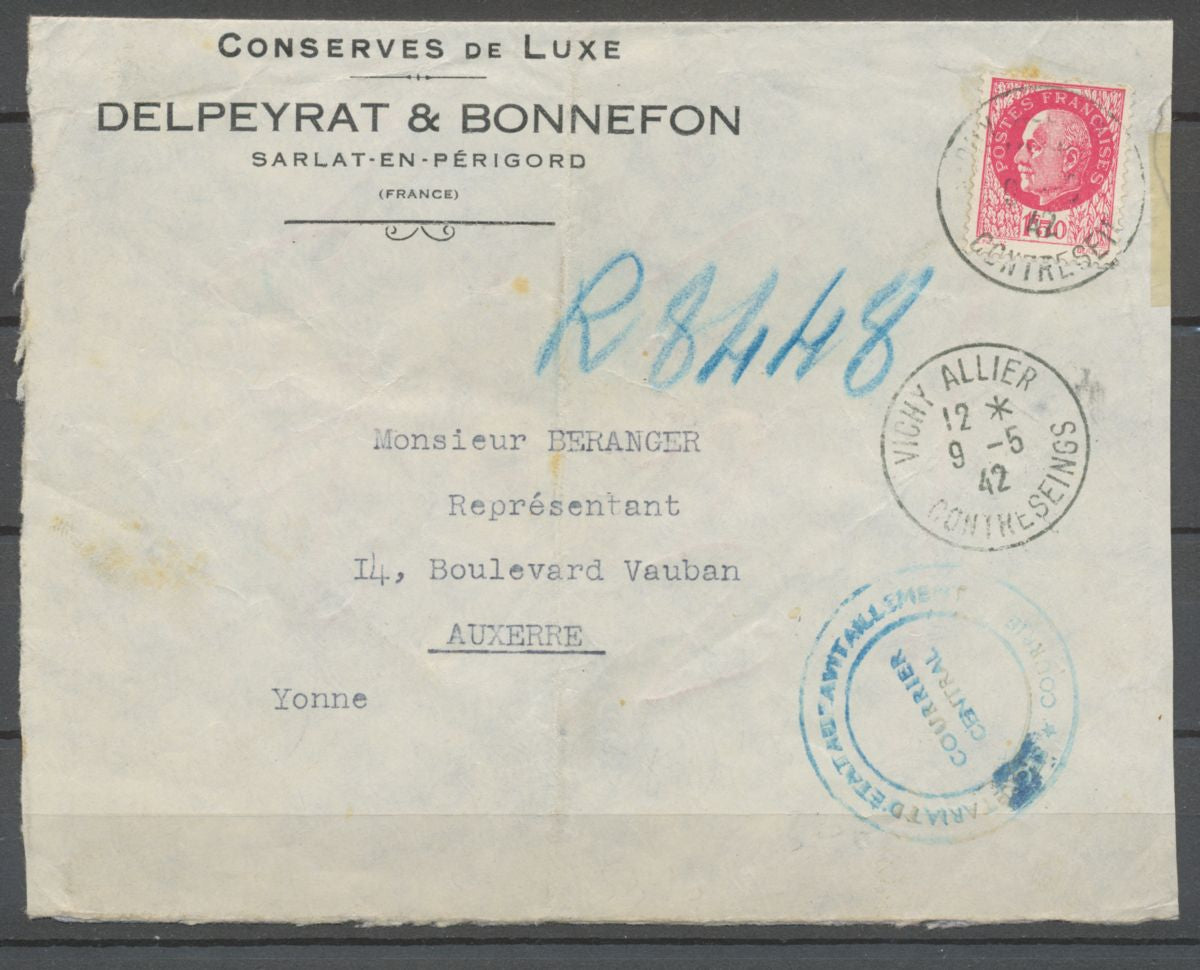 CONSERVES DE LUXE
DELPEYRAT & BONNEFON
SARLAT-EN-PÉRIGORD
(FRANCE)
POSTES FRANÇAISES
1F50
42
CONTRESEI
R 8448
VICHY ALLIER
12 *
9 -5
42
CONTRESEINGS
Monsieur BERANGER
Représentant
I4, Boulevard Vauban
AUXERRE
Yonne
COURRIER
CENTRAL
D'ÉTAT AU RAVITAILLEMENT